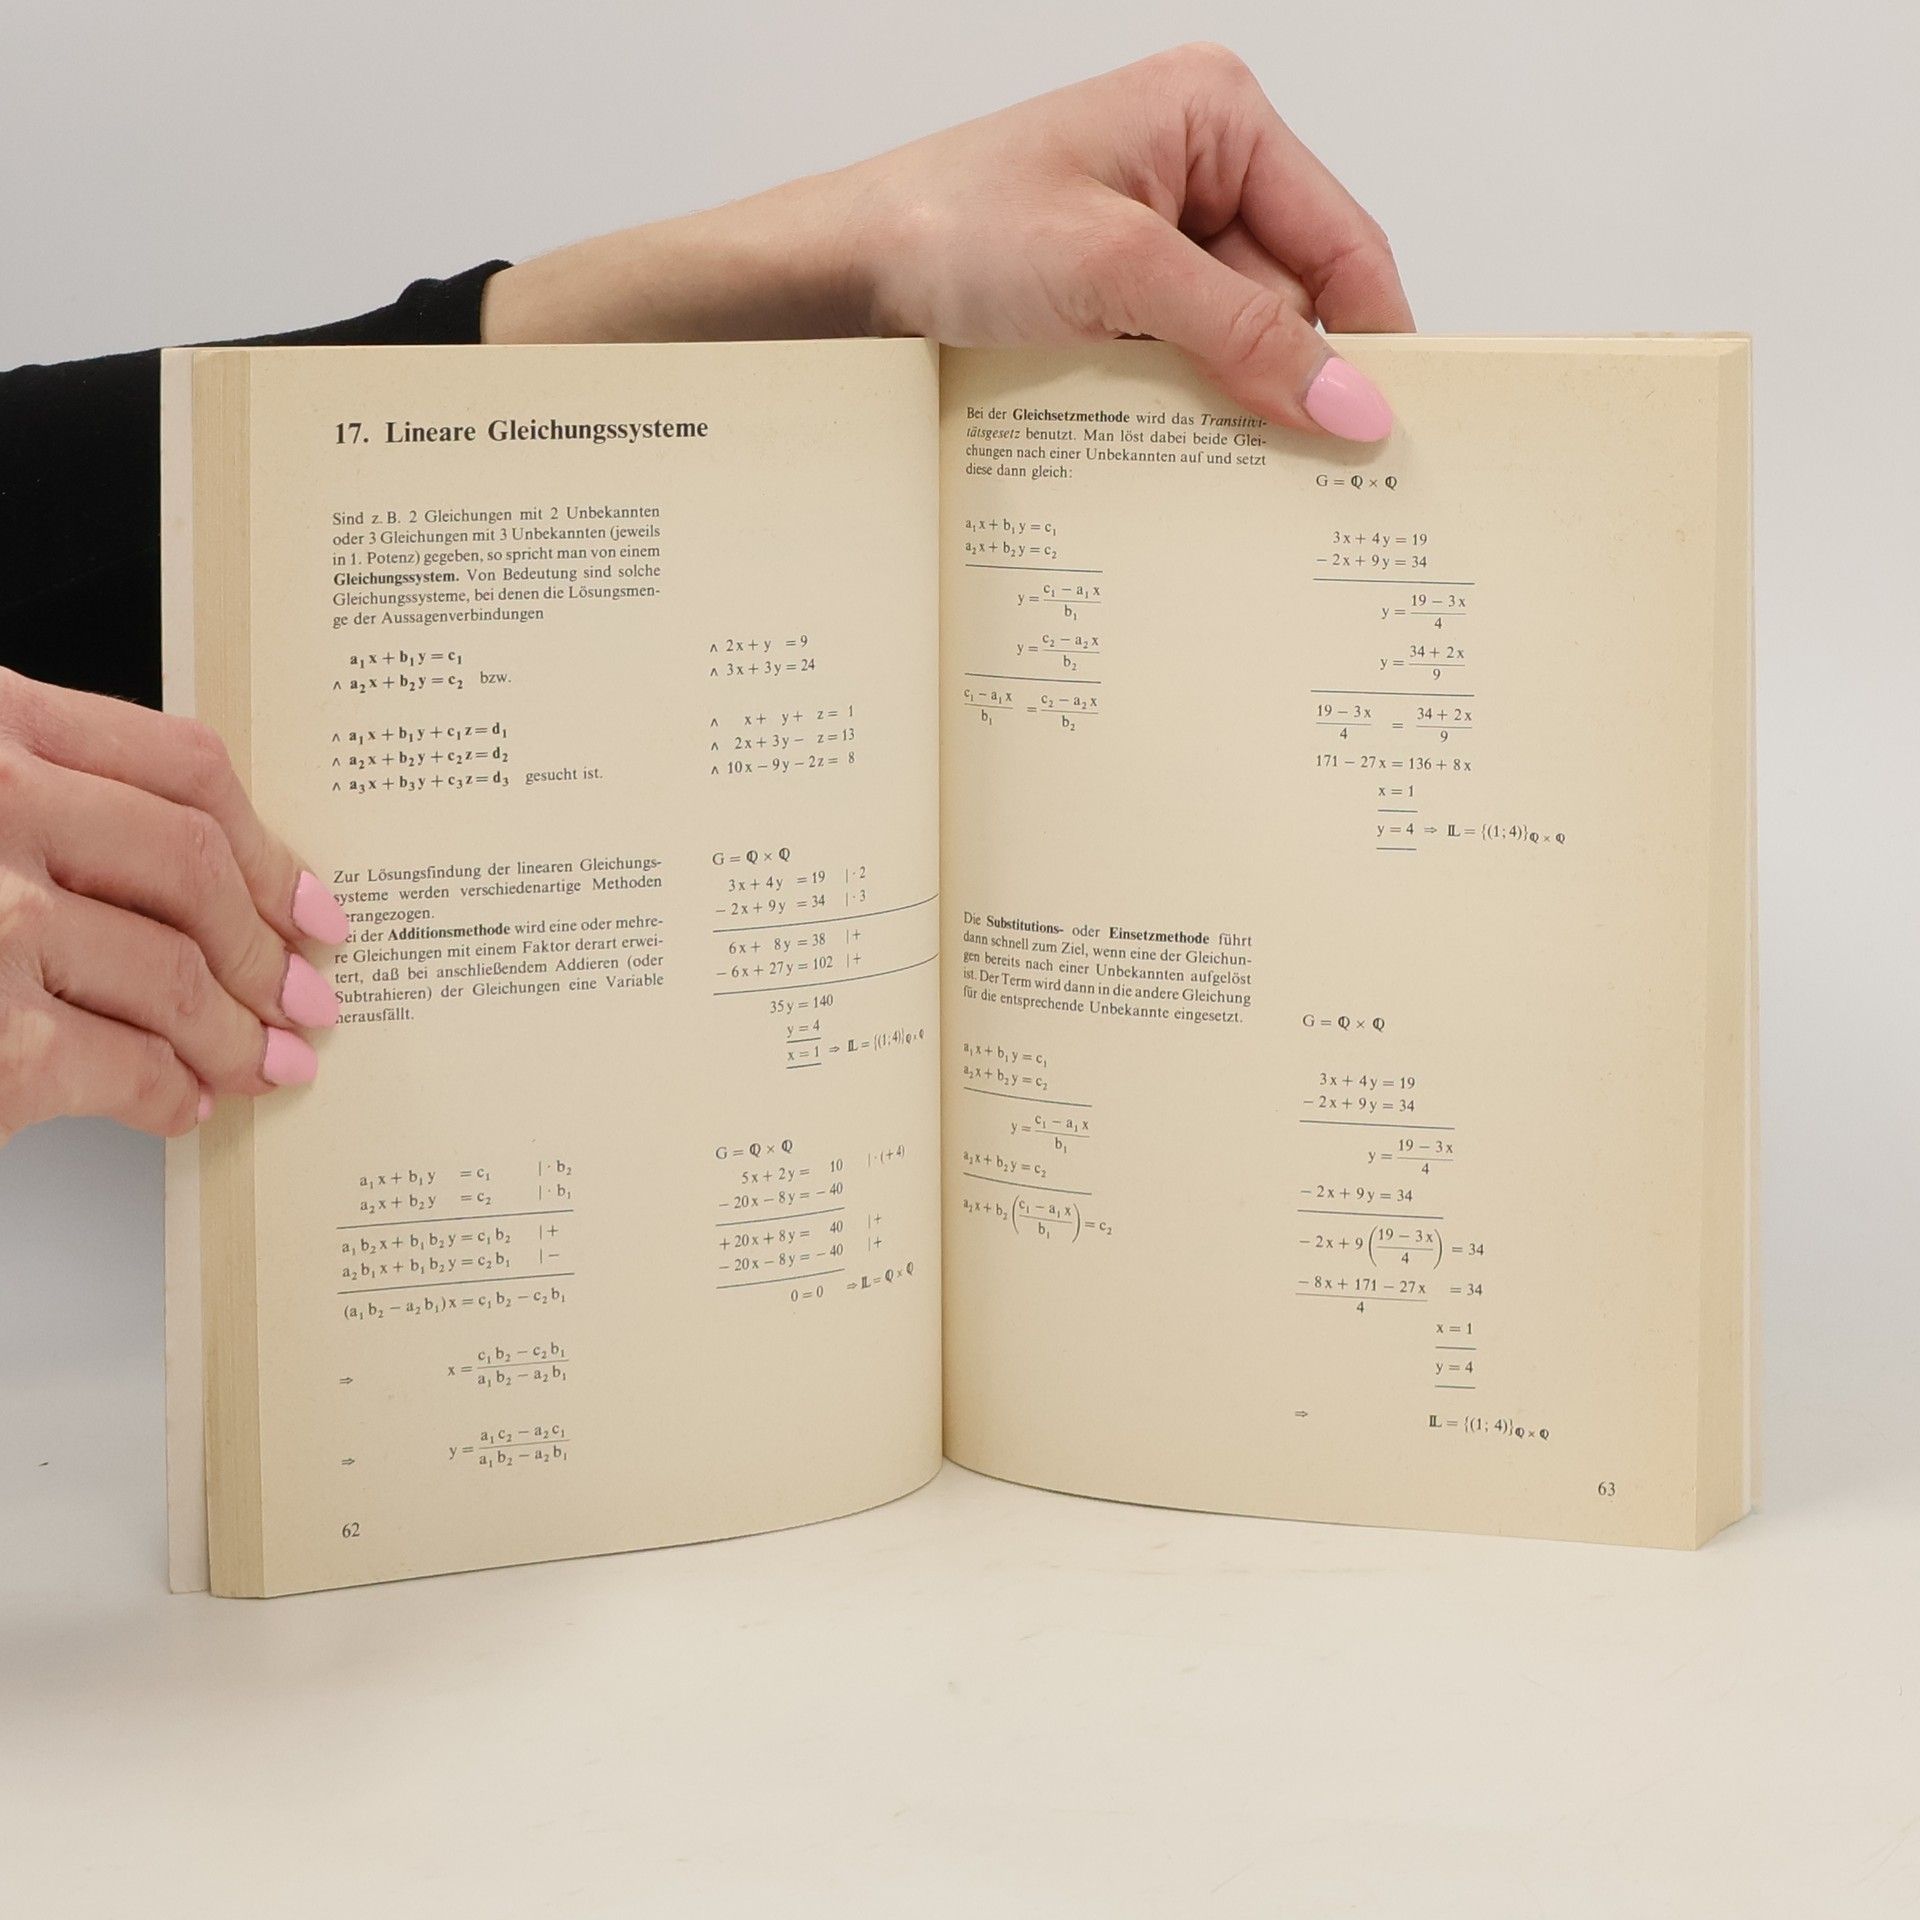 17. Lineare Gleichungssysteme
Sind z. B. 2 Gleichungen mit 2 Unbekannten
oder 3 Gleichungen mit 3 Unbekannten (jeweils
in 1. Potenz) gegeben, so spricht man von einem
Gleichungssystem. Von Bedeutung sind solche
Gleichungssysteme, bei denen die Lösungsmen-
ge der Aussagenverbindungen
a₁x + b₁y = c₁
∧ a₂x + b₂y = c₂ bzw.
∧ 2x + y = 9
∧ 3x + 3y = 24
∧ a₁x + b₁y + c₁z = d₁
∧ a₂x + b₂y + c₂z = d₂
∧ a₃x + b₃y + c₃z = d₃ gesucht ist.
∧ x + y + z = 1
∧ 2x + 3y − z = 13
∧ 10x − 9y − 2z = 8
Zur Lösungsfindung der linearen Gleichungs-
systeme werden verschiedenartige Methoden
erangezogen.
ei der Additionsmethode wird eine oder mehre-
re Gleichungen mit einem Faktor derart erwei-
tert, daß bei anschließendem Addieren (oder
Subtrahieren) der Gleichungen eine Variable
herausfällt.
G = ℚ × ℚ
3x + 4y = 19 | · 2
− 2x + 9y = 34 | · 3
6x + 8y = 38 | +
− 6x + 27y = 102 | +
35y = 140
y = 4
x = 1 ⇒ 𝕃 = {(1; 4)}ℚ × ℚ
a₁x + b₁y = c₁ | · b₂
a₂x + b₂y = c₂ | · b₁
a₁b₂x + b₁b₂y = c₁b₂ | +
a₂b₁x + b₁b₂y = c₂b₁ | −
(a₁b₂ − a₂b₁)x = c₁b₂ − c₂b₁
⇒ x = (c₁b₂ − c₂b₁)/(a₁b₂ − a₂b₁)
⇒ y = (a₁c₂ − a₂c₁)/(a₁b₂ − a₂b₁)
G = ℚ × ℚ
5x + 2y = 10 | · (+4)
− 20x − 8y = − 40
+ 20x + 8y = 40 | +
− 20x − 8y = − 40 | +
0 = 0 ⇒ 𝕃 = ℚ × ℚ
62
Bei der Gleichsetzmethode wird das Transitivi-
tätsgesetz benutzt. Man löst dabei beide Glei-
chungen nach einer Unbekannten auf und setzt
diese dann gleich:
a₁x + b₁y = c₁
a₂x + b₂y = c₂
y = (c₁ − a₁x)/b₁
y = (c₂ − a₂x)/b₂
(c₁ − a₁x)/b₁ = (c₂ − a₂x)/b₂
G = ℚ × ℚ
3x + 4y = 19
− 2x + 9y = 34
y = (19 − 3x)/4
y = (34 + 2x)/9
(19 − 3x)/4 = (34 + 2x)/9
171 − 27x = 136 + 8x
x = 1
y = 4 ⇒ 𝕃 = {(1; 4)}ℚ × ℚ
Die Substitutions- oder Einsetzmethode führt
dann schnell zum Ziel, wenn eine der Gleichun-
gen bereits nach einer Unbekannten aufgelöst
ist. Der Term wird dann in die andere Gleichung
für die entsprechende Unbekannte eingesetzt.
a₁x + b₁y = c₁
a₂x + b₂y = c₂
y = (c₁ − a₁x)/b₁
a₂x + b₂y = c₂
a₂x + b₂((c₁ − a₁x)/b₁) = c₂
G = ℚ × ℚ
3x + 4y = 19
− 2x + 9y = 34
y = (19 − 3x)/4
− 2x + 9y = 34
− 2x + 9((19 − 3x)/4) = 34
(− 8x + 171 − 27x)/4 = 34
x = 1
y = 4
⇒ 𝕃 = {(1; 4)}ℚ × ℚ
63